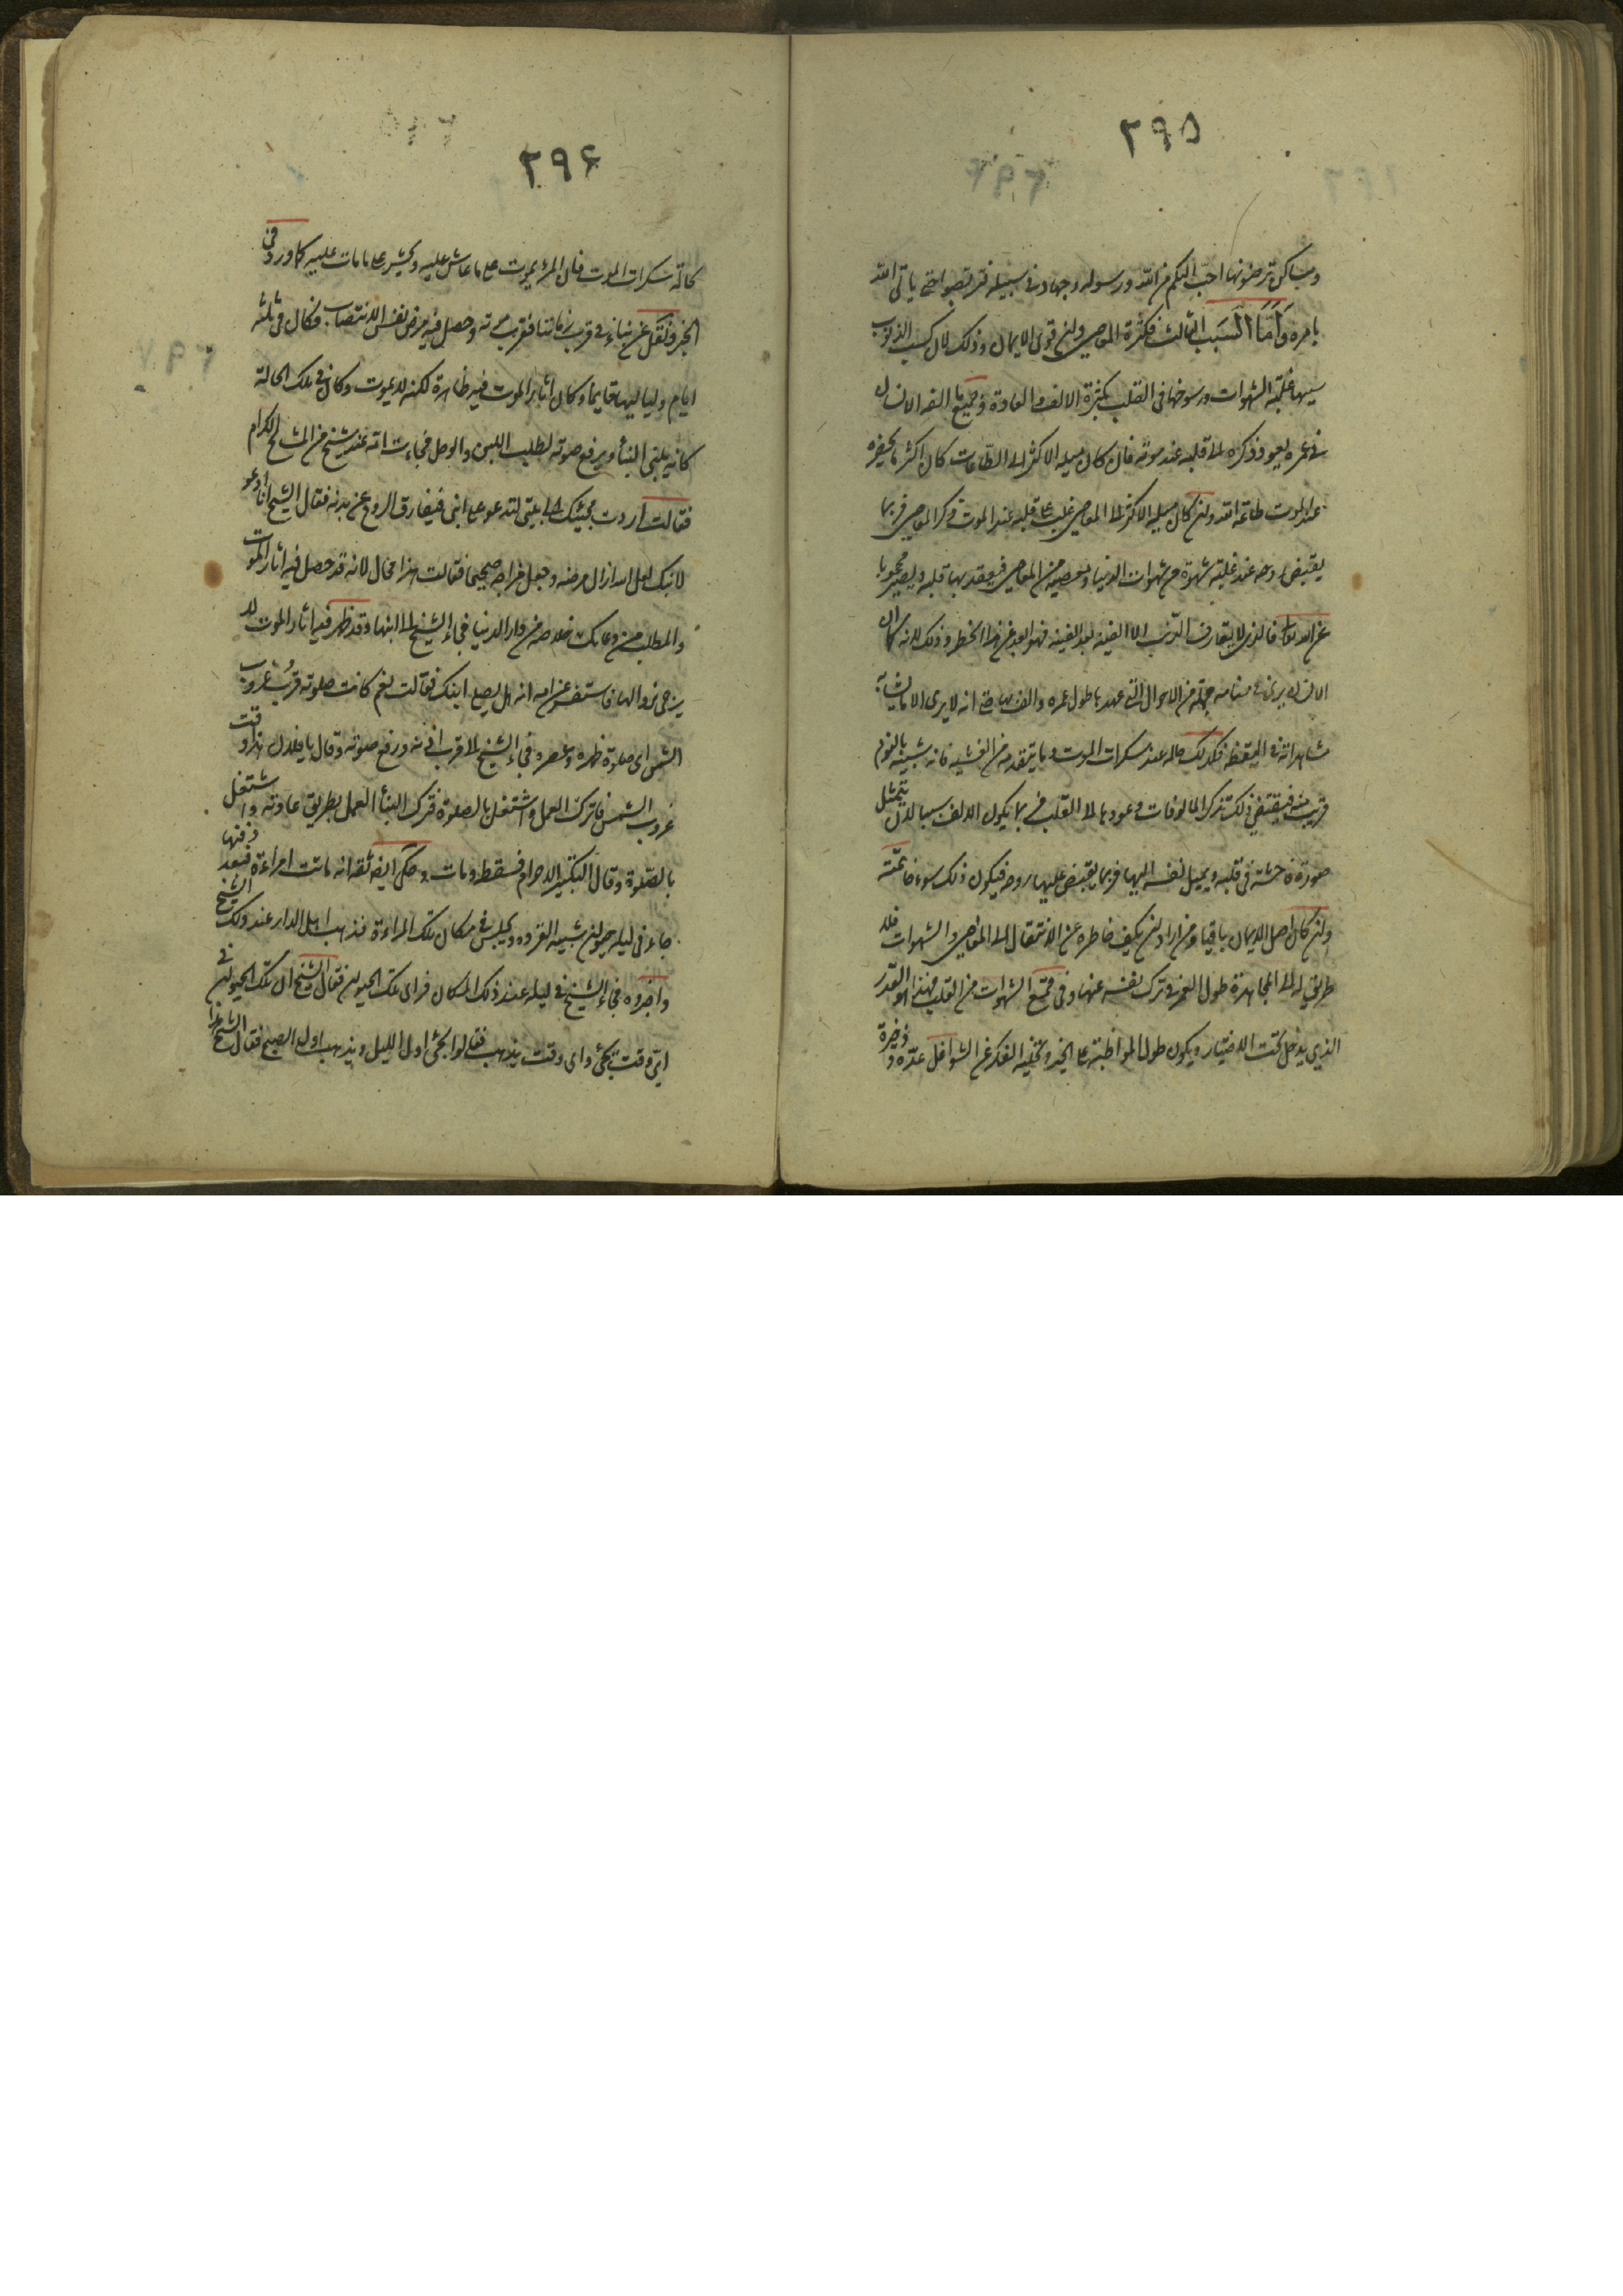 ٢٩٥
ومساكن ترضونها احبّ اليكم من اللّه ورسوله وجهاد فى سبيله فتربصوا حتى ياتى اللّه
بامره وَاَمَّا السَبَب الثالث فكثرة المعاصى وان قوى الايمان وذلك لان كسب الذنوب
سببها غلبة الشهوات ورسوخها فى القلب بكثرة الالف والعادة وجميع ما الفه الانسان
فى عمره يعود ذكره الى قلبه عند موته فان كان ميله الاكثر الى الطاعات كان اكثر ما يحضره
عند الموت طاعة اللّه وان كان ميله الاكثر الى المعاصى غلب على قلبه عند الموت ذكر المعاصى فربما
يقبض روحه عند غلبة شهوة من شهوات الدنيا ومعصية من المعاصى فيتقيد بها قلبه ويصير محجوبا
عن اللّه تعالى فالذى لا يقارف الذنب الا الفينة بعد الفينة فهو ابعد عن هذا الخطر وذلك لانه كما ان
الانسان يرى فى منامه جملة من الاحوال التى عهدها طول عمره والف بها حتى انه لا يرى الا ما يشابه
مشاهداته فى اليقظة فكذلك حاله عند سكرات الموت وما يتقدمه من الغشية فانه شبيه بالنوم
قريب منه فيقتضى ذلك تذكر المالوفات وعودها الى القلب فربما يكون الالف سببا لان يتمثل
صورة فاحشة فى قلبه ويميل نفسه اليها فربما يقبض عليها روحه فيكون ذلك سوء خاتمته
وان كان اصل الايمان باقيا ومن اراد ان يكف خاطره عن الانتقال الى المعاصى والشهوات فلا
طريق له الا المجاهدة طول العمر فى ترك نفسه عنها وفى قمع الشهوات من القلب فهذا هو القدر
الذى يدخل تحت الاختيار ويكون طول المواظبة على الخير وتخلية الفكر عن الشواغل عدّة وذخيرة
٢٩۶
لحالة سكرات الموت فان المرء يموت على ما عاش عليه ويحشر على ما مات عليه كما ورد فى
الخبر ونقل عن بناء فى قرب زماننا فقرب موته وحصل فيه مرض نفس الانتصاب فكان فى ثلثة
ايام ولياليها قايما وكان اثار الموت فيه ظاهرة لكنه لا يموت وكان فى تلك الحالة
كانه يلبنى البناء ويرفع صوته لطلب اللبن والوحل فجاءت امّه عند شيخ من المشايخ الكرام
فقالت اردت بمجيئك الى بيتى لتدعو على ابنى فيفارق الروح عن بدنه فقال الشيخ انا ادعو
لابنك لعل اللّه ازال مرضه وجعل مزاجه صحيحا فقالت هذا محال لانه قد حصل فيه اثار الموت
والمطلب من دعائك خلاصه من دار الدنيا فجاء الشيخ الى ابنها وقد ظهر فيه اثار الموت لا
يرجى زوالها فاستفسر عن امه انه هل يصلى ابنك فقالت نعم كانت صلوته قرب غروب
الشمس اى صلوة ظهره وعصره فجاء الشيخ الى قرب اذنه ورفع صوته وقال يا فلان هذا وقت
غروب الشمس فاترك العمل واشتغل بالصلوة فترك البناء العمل بطريق عادته واشتغل
بالصلوة وقال التكبير الاحرام فسقط ومات وحكى ايضا ثقة انه ماتت امراءة فبعد دفنها
جاء فى ليلة حيوان شبيه القرده ويجلس فى مكان تلك المراءة فذهب اهل الدار عند ذلك الشيخ
واخبروه فجاء الشيخ فى ليلة عند ذلك المكان فراى تلك الحيوان فقال الشيخ ان تلك الحيوان فى
اىّ وقت تجئ واى وقت يذهب فقالوا يجئ اول الليل ويذهب اول الصبح فقال الشيخ